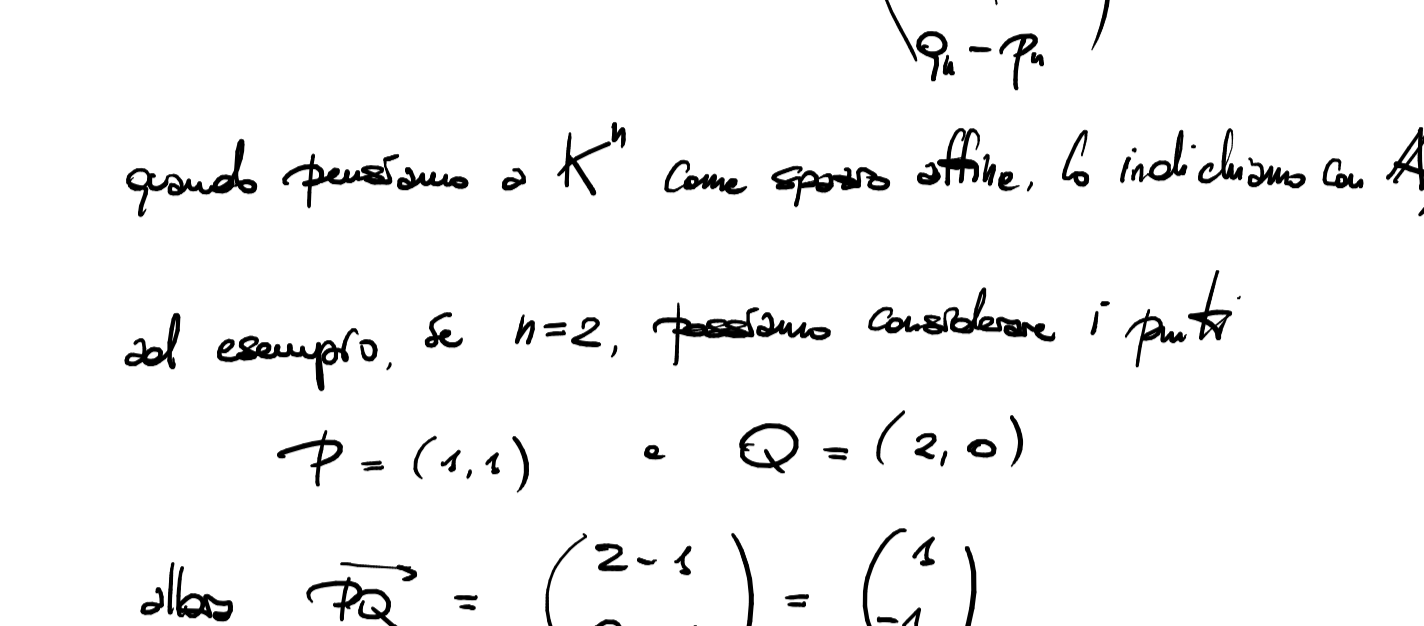 qₙ - pₙ
quando pensiamo a Kⁿ come spazio affine, lo indichiamo con A
ad esempio, se n=2, possiamo considerare i punti
P = (1,1) e Q = (2,0)
2-1 1
allora PQ = ( ) = ( )
-1